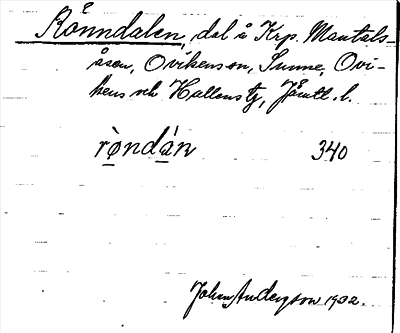 Rönndalen, dal å Krp. Mantals-
åsen, Ovikens sn, Sunne, Ovi-
kens och Hallens tg, Jämtl. l.
rø̀ndán 340
Johan Anderson 1932.